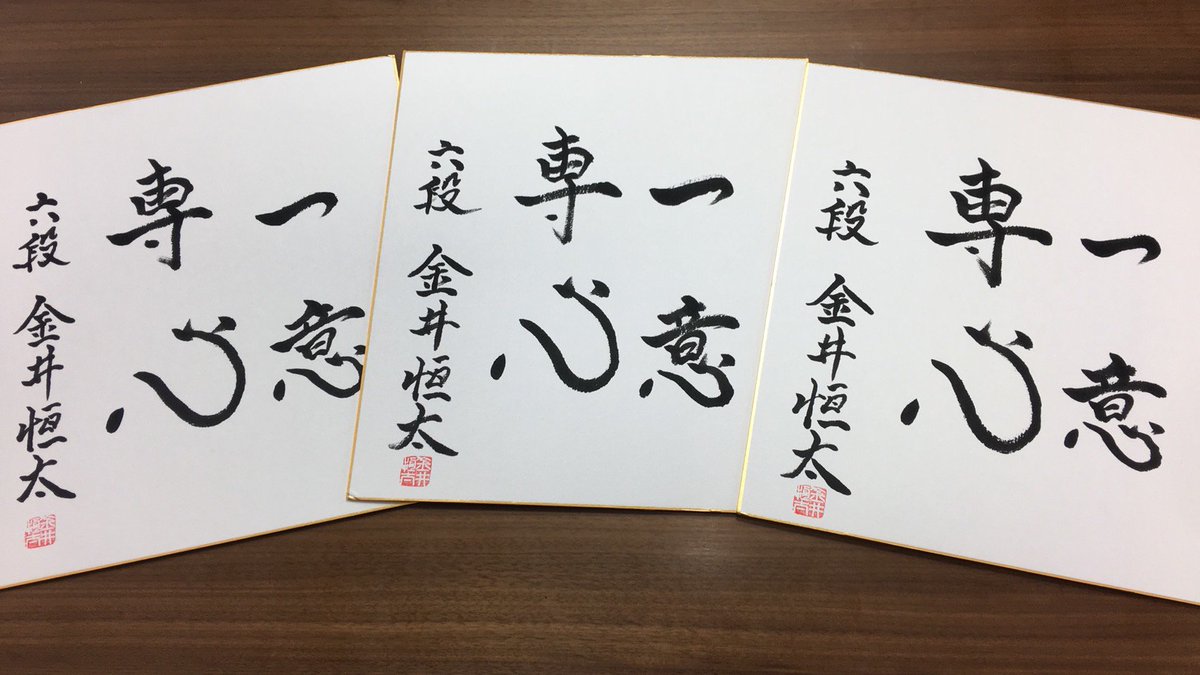 一意
専心
六段 金井恒太
一意
専心
六段 金井恒太
一意
専心
六段 金井恒太